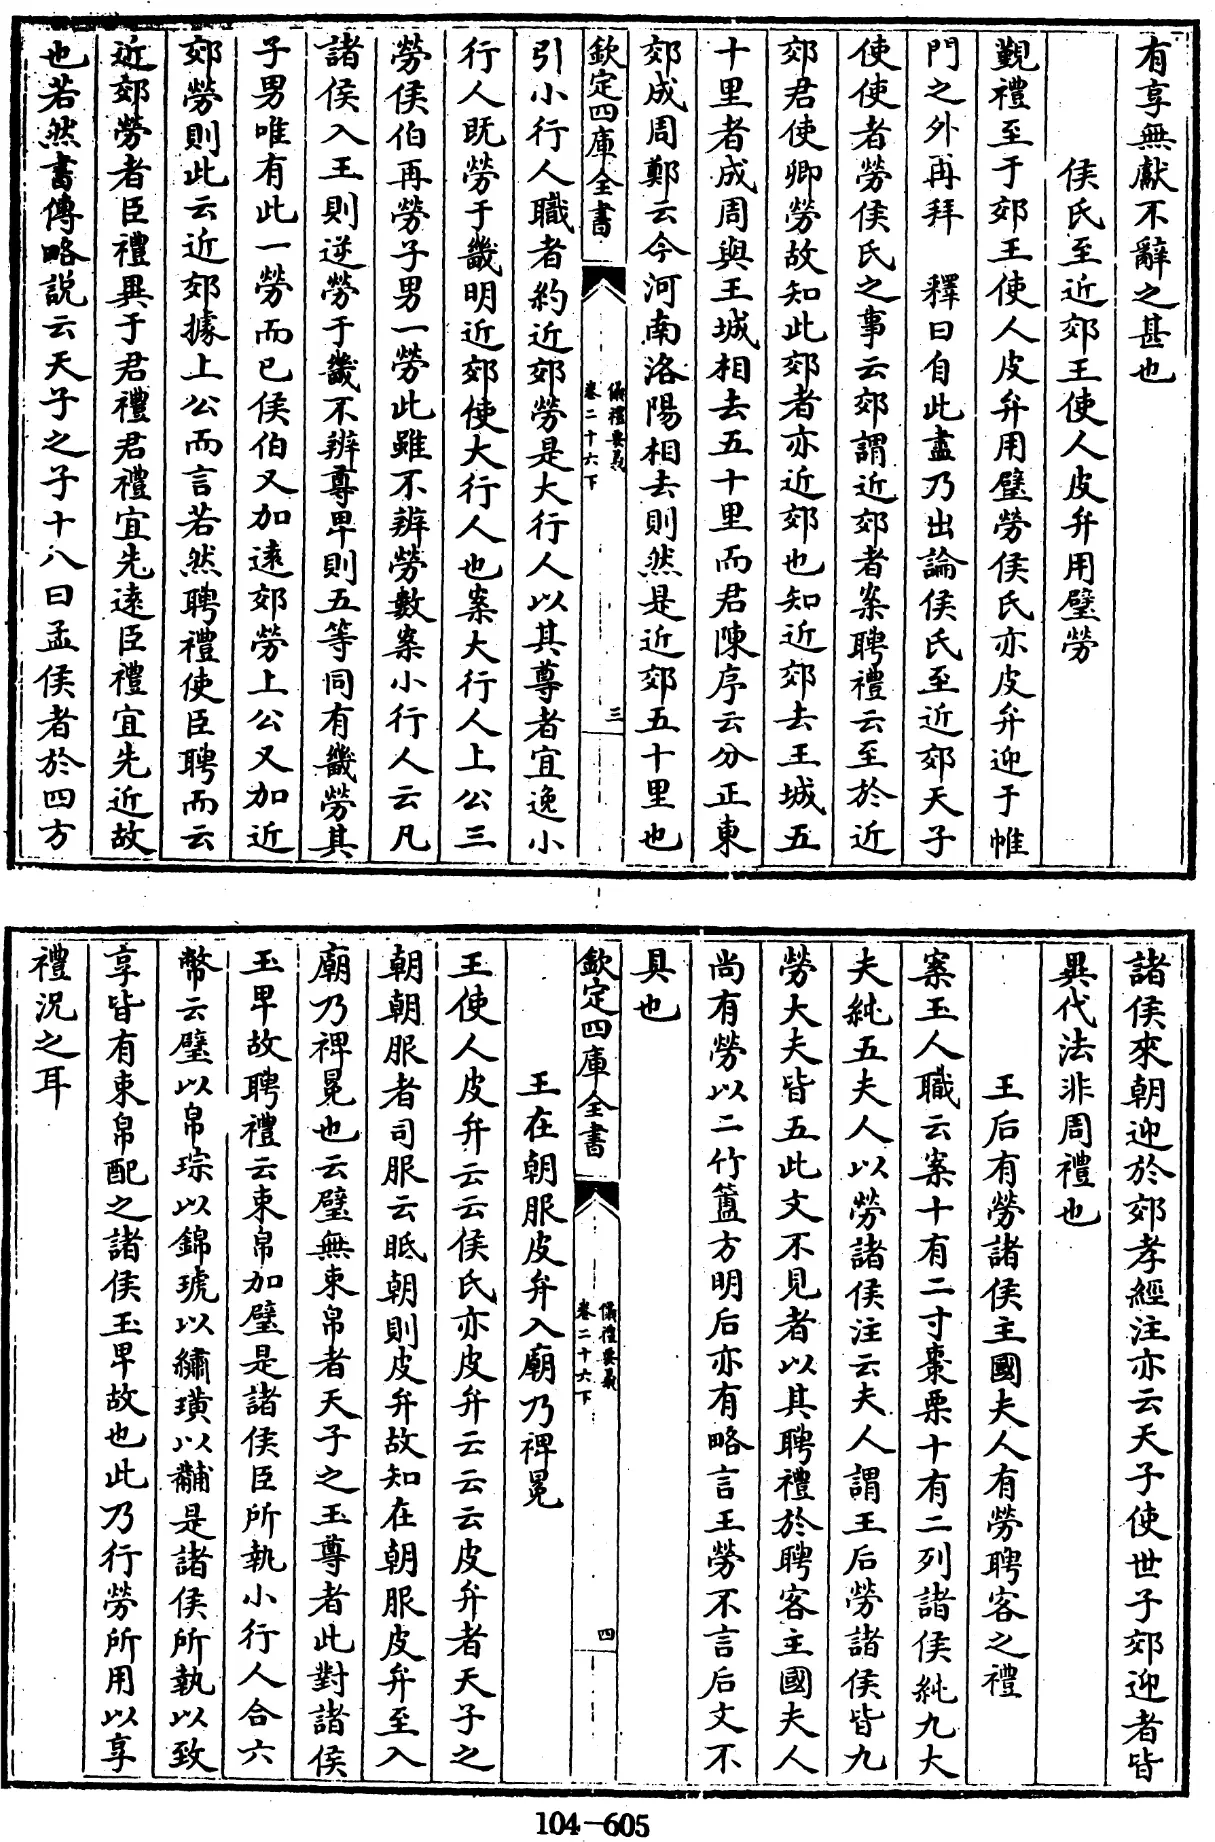 有享無獻不辭之甚也
侯氏至近郊王使人皮弁用璧勞
覲禮至于郊王使人皮弁用璧勞侯氏亦皮弁迎于帷
門之外再拜　釋曰自此盡乃出論侯氏至近郊天子
使使者勞侯氏之事云郊謂近郊者案聘禮云至於近
郊君使卿勞故知此郊者亦近郊也知近郊去王城五
十里者成周與王城相去五十里而君陳序云分正東
郊成周鄭云今河南洛陽相去則然是近郊五十里也
欽定四庫全書
儀禮要義
卷二十六下
三
引小行人職者約近郊勞是大行人以其尊者宜逸小
行人既勞于畿明近郊使大行人也案大行人上公三
勞侯伯再勞子男一勞此雖不辨勞數案小行人云凡
諸侯入王則逆勞于畿不辨尊卑則五等同有畿勞其
子男唯有此一勞而已侯伯又加遠郊勞上公又加近
郊勞則此云近郊據上公而言若然聘禮使臣聘而云
近郊勞者臣禮異于君禮君禮宜先遠臣禮宜先近故
也若然書傳略說云天子之子十八曰孟侯者於四方
諸侯來朝迎於郊孝經注亦云天子使世子郊迎者皆
異代法非周禮也
王后有勞諸侯主國夫人有勞聘客之禮
案玉人職云案十有二寸棗栗十有二列諸侯純九大
夫純五夫人以勞諸侯注云夫人謂王后勞諸侯皆九
勞大夫皆五此文不見者以其聘禮於聘客主國夫人
尚有勞以二竹簠方明后亦有略言王勞不言后文不
具也
欽定四庫全書
儀禮要義
卷二十六下
四
王在朝服皮弁入廟乃裨冕
王使人皮弁云云侯氏亦皮弁云云云皮弁者天子之
朝朝服者司服云眡朝則皮弁故知在朝服皮弁至入
廟乃裨冕也云璧無束帛者天子之玉尊者此對諸侯
玉卑故聘禮云束帛加璧是諸侯臣所執小行人合六
幣云璧以帛琮以錦琥以繡璜以黼是諸侯所執以致
享皆有束帛配之諸侯玉卑故也此乃行勞所用以享
禮況之耳
104—605